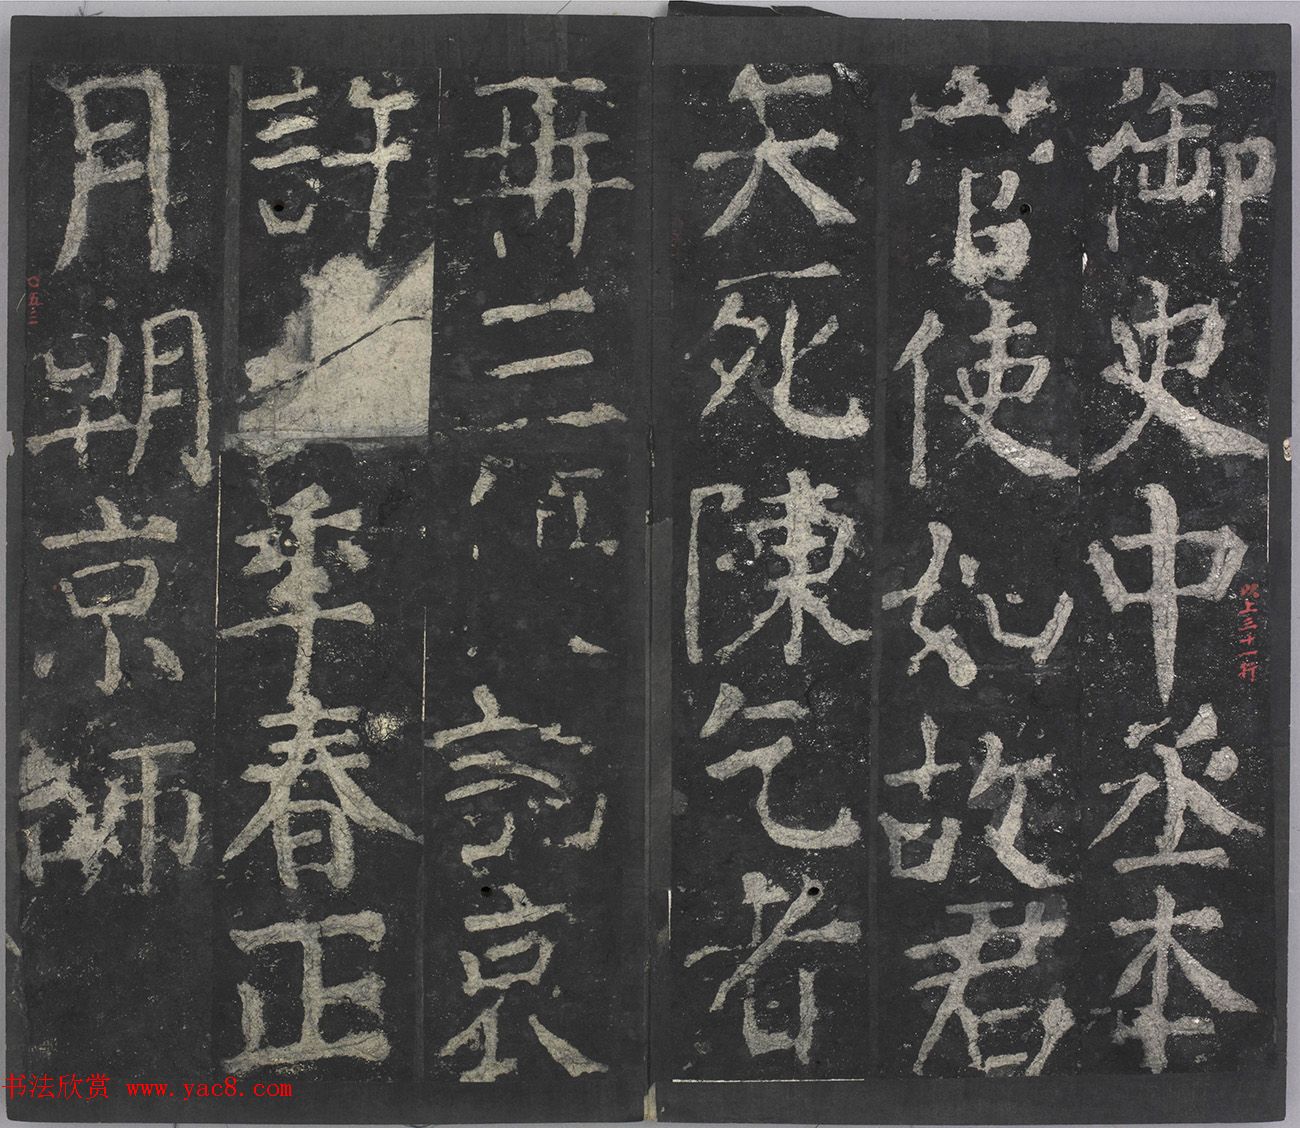 御史中丞本
當使如故君
矢死陳乞者
再三 竟京
許 年春正
月朝京師
以上三十一行
〇五三
书法欣赏 www.yac8.com